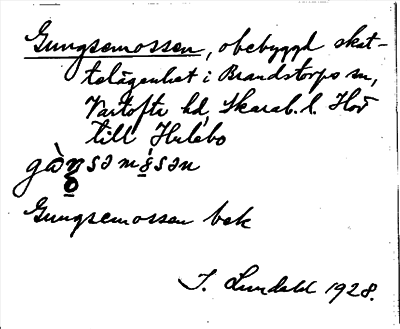 Gungsemossen, obebyggd skat-
telägenhet i Brandstorps sn,
Vartofta hd, Skarab. l. Hör
till Hulebo
Gungsemossen bek
J. Lundahl 1928.